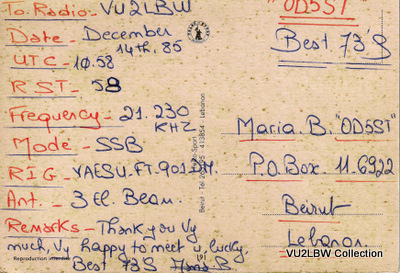 To. Radio - VU2LBW
Date - December
14th. 85
UTC - 10.58
RST - 58
Frequency - 21.230
KHZ
Mode - SSB
RIG - YAESU. FT. 901 DM
Ant. - 3 El. Beam
Remarks - Thank you Vy
much, Vy happy to meet u, lucky.
Best 73'S
Reproduction
"OD5ST"
Best 73'S
Maria. B. "OD5ST"
P.O. Box. 11.6922
Beirut
Lebanon.
VU2LBW Collection